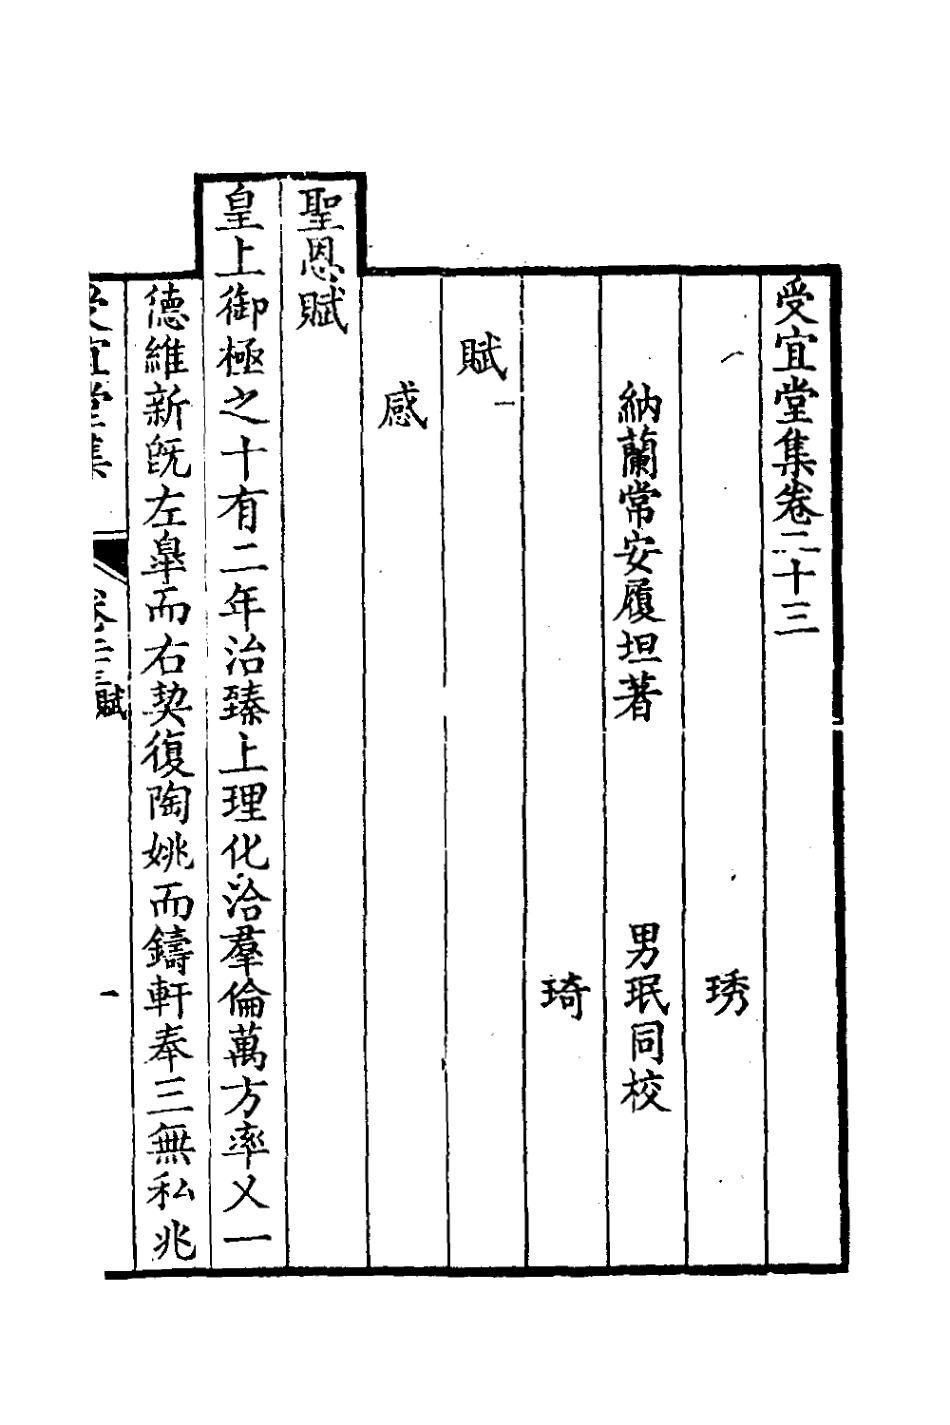 受宜堂集卷二十三
琇
納蘭常安履坦著 男珉同校
琦
賦一
感
聖恩賦
皇上御極之十有二年治臻上理化洽羣倫萬方率乂一
德維新旣左臯而右契復陶姚而鑄軒奉三無私兆
受宜堂集 卷二十三 賦 一